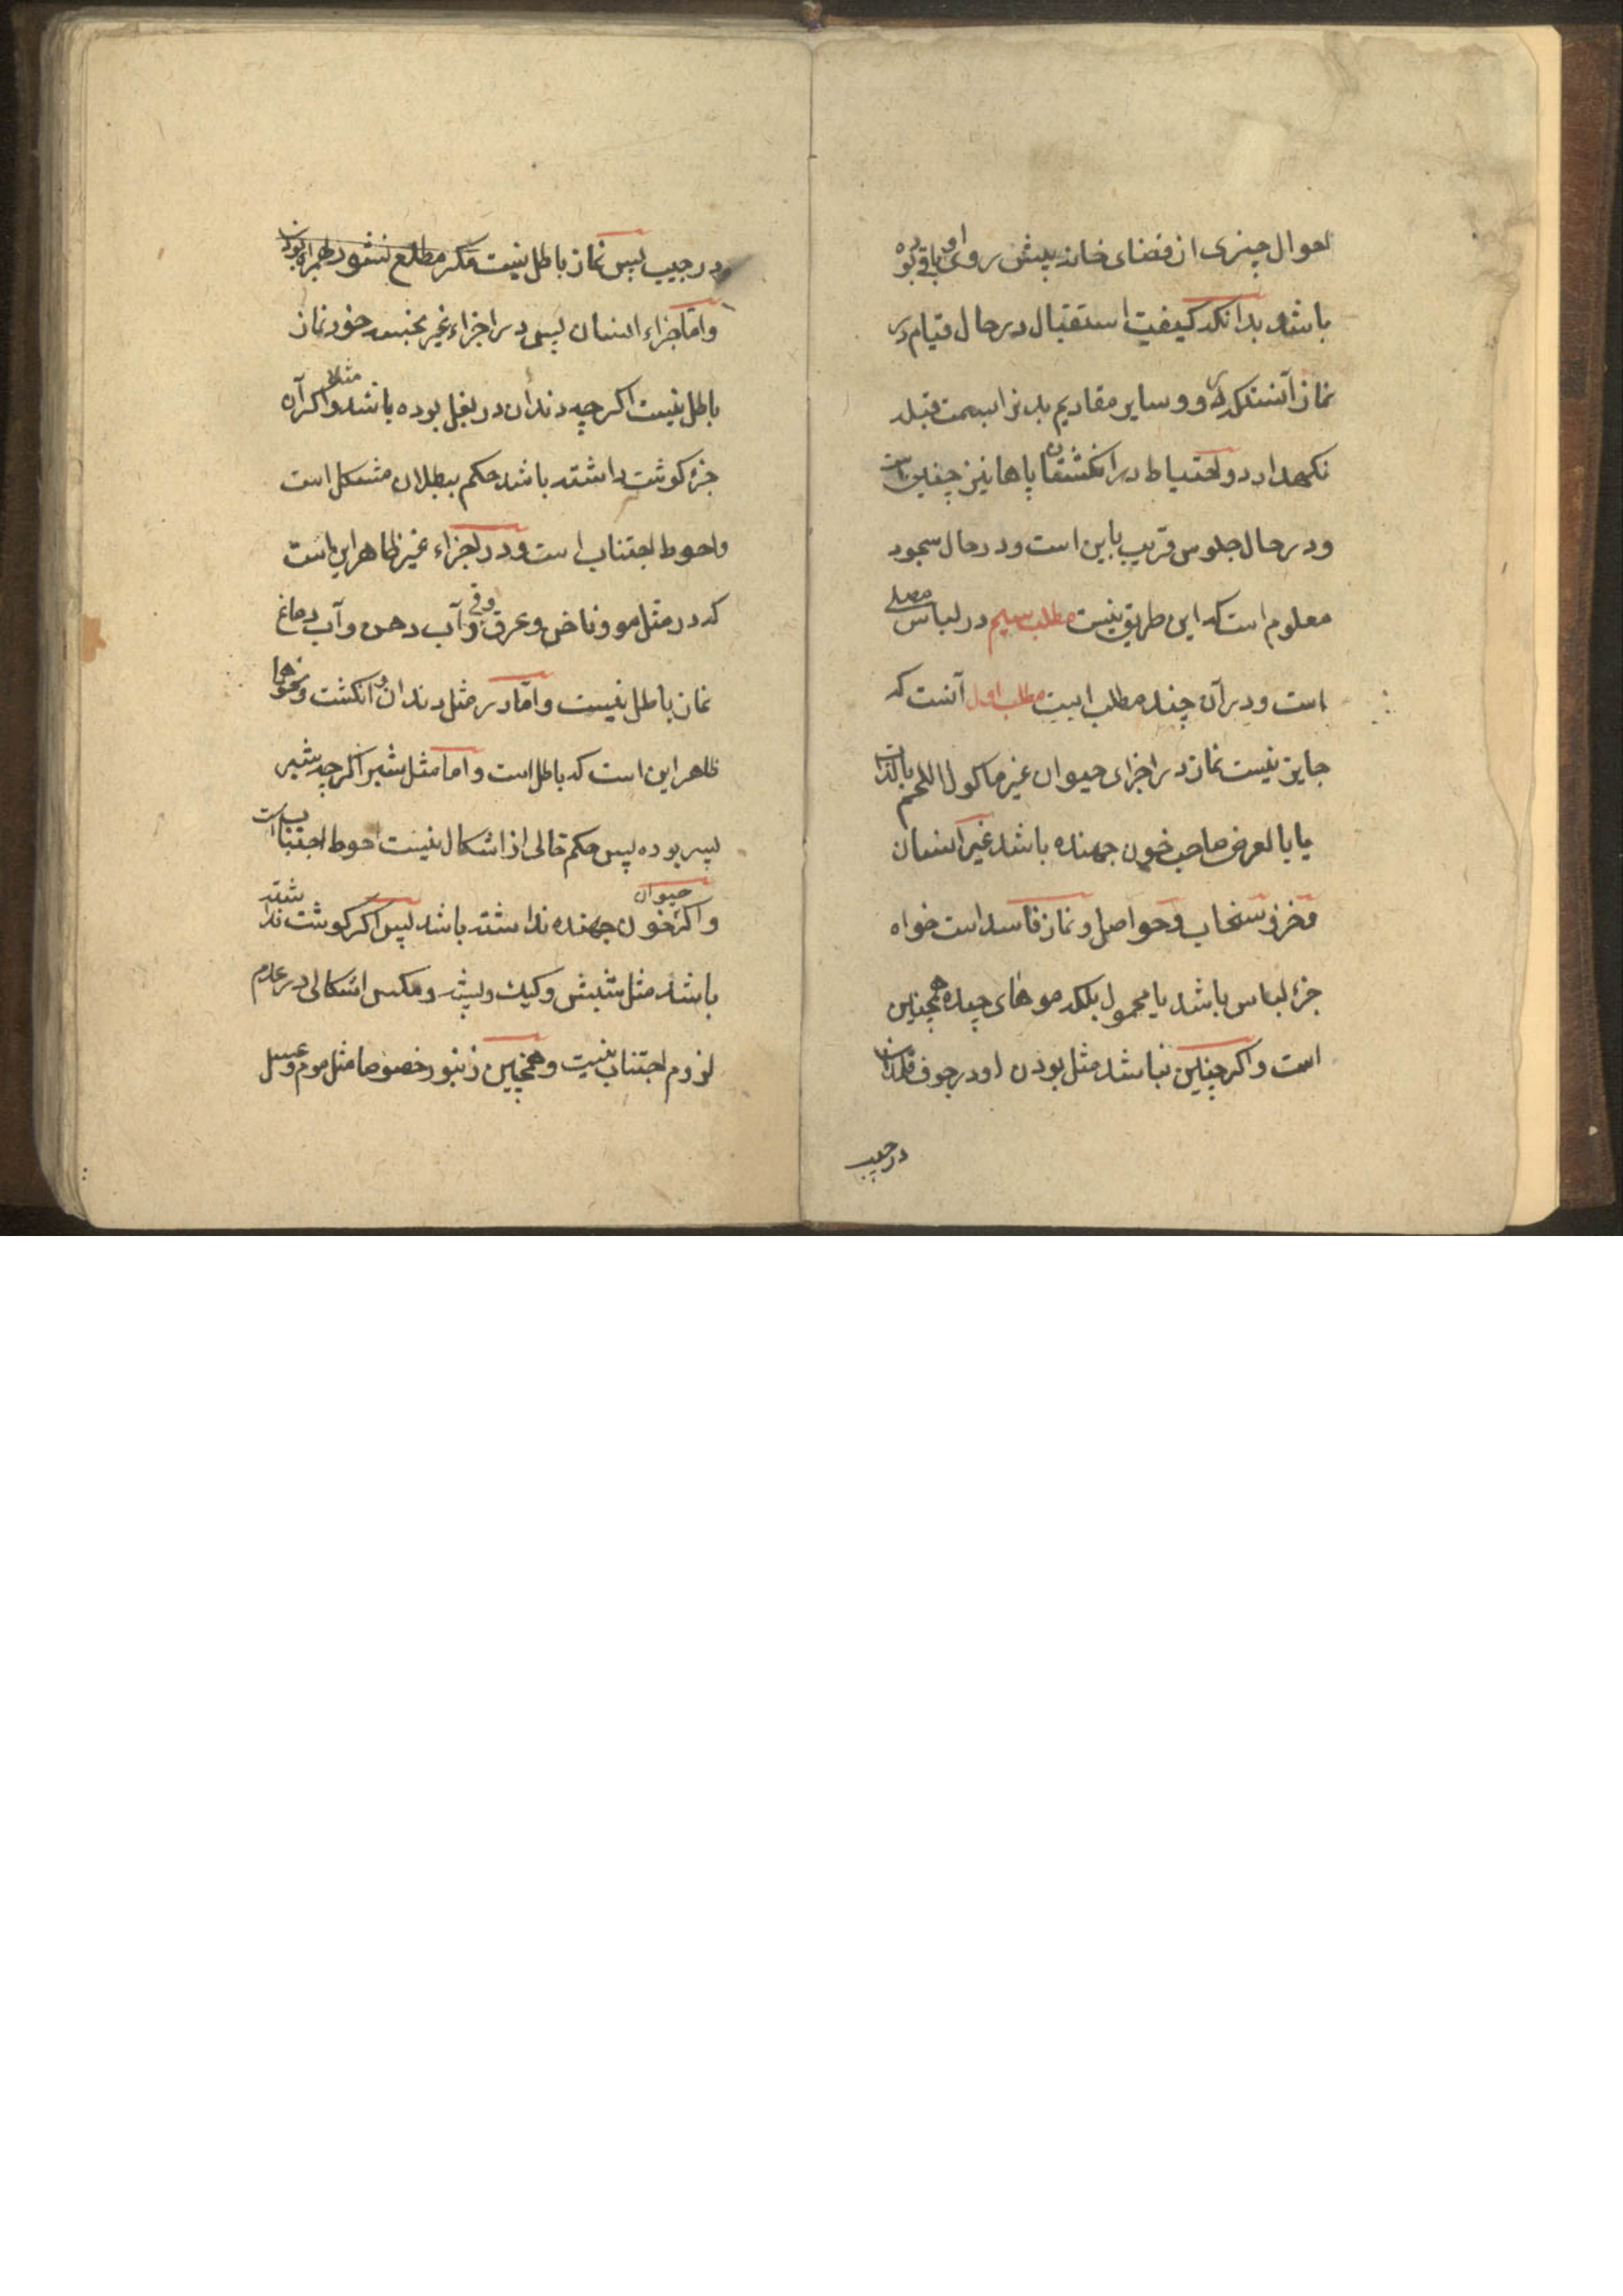 احوال چیزی از فضای خانه پیش روی او باقی بوده
باشد بدانکه کیفیت استقبال در حال قیام در
نماز آنستکه رو و سایر مقادیم بدنرا بسمت قبله
نکهدارد و احتیاط در انکشتان پاها نیز چنین است
و در حال جلوس قریب باین است و در حال سجود
معلوم است که این طریق نیست مطلب سیم در لباس مصلی
است و در آن چند مطلب است مطلب اول آنست که
جایز نیست نماز در اجزای حیوان غیر ماکول اللحم بالذات
یا بالعرض صاحب خون جهنده باشد غیر انسان
و خز و سنجاب و حواصل و نماز فاسد است خواه
جزء لباس باشد یا محمول بلکه موهای چیده همچنین
است و اکر چنین نباشد مثل بودن او در جوف قلمدان
در جیب
و در جیب پس نماز باطل نیست مکر مطلع نشود همراه بودن
و اما اجزاء انسان پس در اجزاء غیر نجسه خود نماز
باطل نیست اکرچه دندان در بغل بوده باشد مثلا و اکر آن
جزء کوشت داشته باشد حکم ببطلان مشکل است
و احوط اجتناب است و در اجزاء غیر ظاهر این است
که در مثل مو و ناخن و عرق و قی و آب دهن و آب دماغ
نماز باطل نیست و اما در مثل دندان و انکشت و نحوها
ظاهر این است که باطل است و اما مثل شیر اکرچه شیر
پسر بوده پس حکم خالی از اشکال نیست احوط اجتناب است
و اکر حیوان خون جهنده نداشته باشد پس اکر کوشت نداشته
باشد مثل شپش و کیک و پشه و مکس اشکالی در عدم
لزوم اجتناب نیست و همچنین زنبور خصوصا مثل موم و عسل